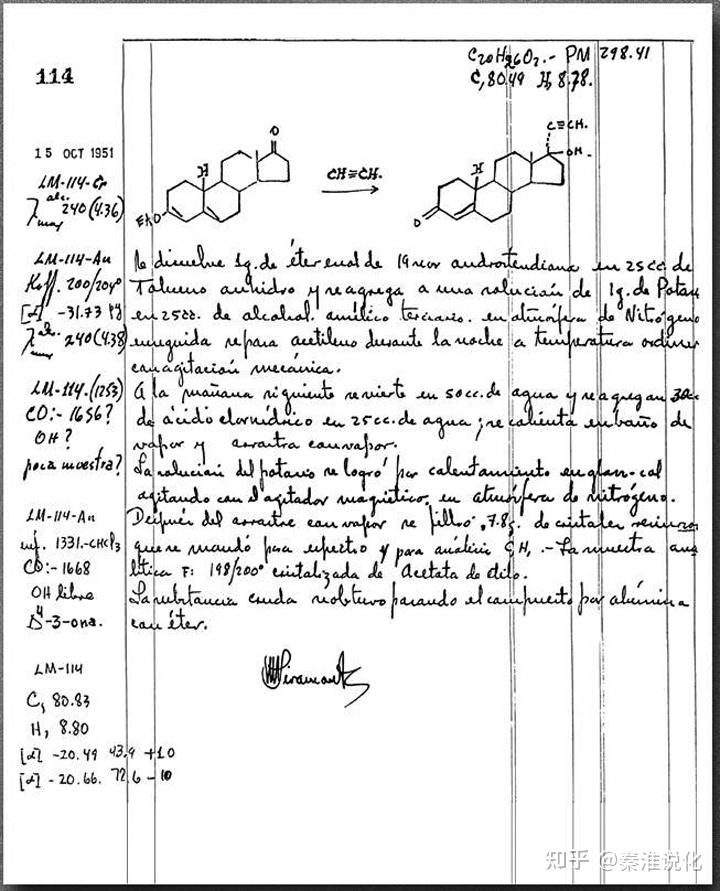 C20H26O2.- PM 298.41
C, 80.49 H, 8.78.
114
15 OCT 1951
LM-114-Cr
λ alc. max 240 (4.36)
H
O
EtO
CH≡CH.
H
C≡CH.
OH.
O
LM-114-An
Koff. 200/204°
[α] -31.73 Py
λ alc. max 240 (4.38)
LM-114.(1253)
CO:- 1656?
OH?
poca muestra?
LM-114-An
inf. 1331.-CHCl3
CO:- 1668
OH libre
Δ4-3-ona.
LM-114
C, 80.83
H, 8.80
[α] -20.49 43.9 +10
[α] -20.66. 72.6 -10
Se disuelve 1g. de éter enol de 19 nor androstendiona en 25cc. de
Tolueno anhidro y se agrega a una solución de 1g. de Potasio
en 25cc. de alcohol amílico terciario. en atmósfera de Nitrógeno
enseguida se pasa acetileno durante la noche a temperatura
con agitación mecánica.
A la mañana siguiente se vierte en 50cc. de agua y se agregan 30cc
de ácido clorhídrico en 25cc. de agua; se calienta en baño de
vapor y arrastra con vapor.
La solución del potasio se logró por calentamiento en glas-col
agitando con el agitador magnético, en atmósfera de nitrógeno.
Después del arrastre con vapor se filtró, 7.8g. de cristales
que se mandó para espectro y para análisis C,H, .- La muestra
lítica F: 198/200° cristalizada de Acetato de etilo.
La substancia cruda se obtuvo pasando el compuesto por alúmina
con éter.
知乎 @秦淮说化